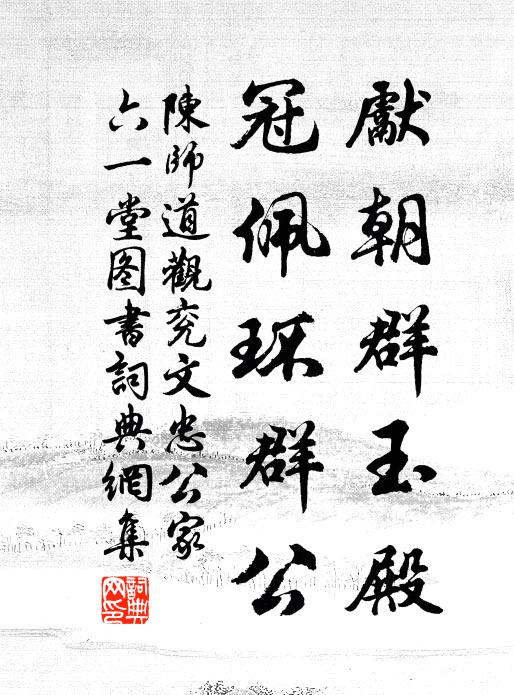 獻朝群玉殿
冠佩環群公
陳師道觀兖文忠公家
六一堂图書詞典網集
詞典网印